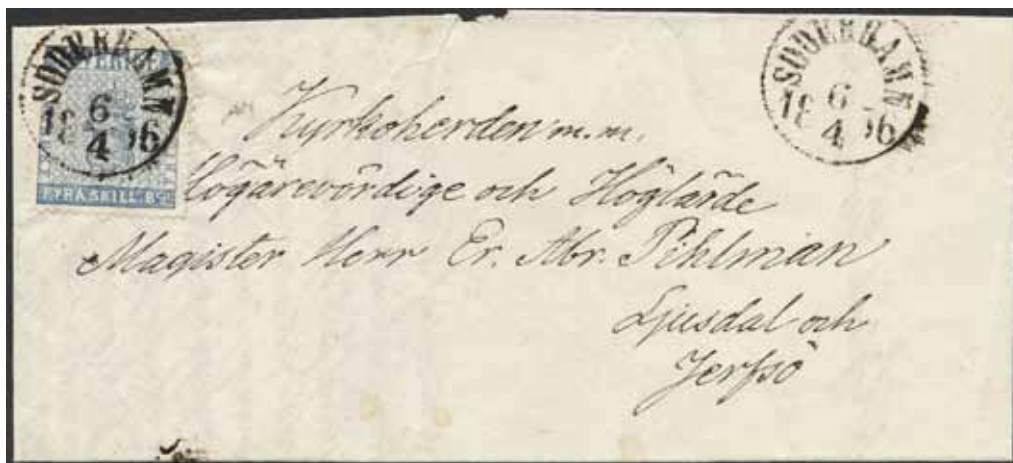 SVERIGE
SÖDERHAMN
6
4
FYRA SKILL. Bco
SÖDERHAMN
6
4
Kyrkoherden m.m.
Högärevördige och Höglärde
Magister Herr Er. Abr. Pihlman
Ljusdal och
Jerfsö